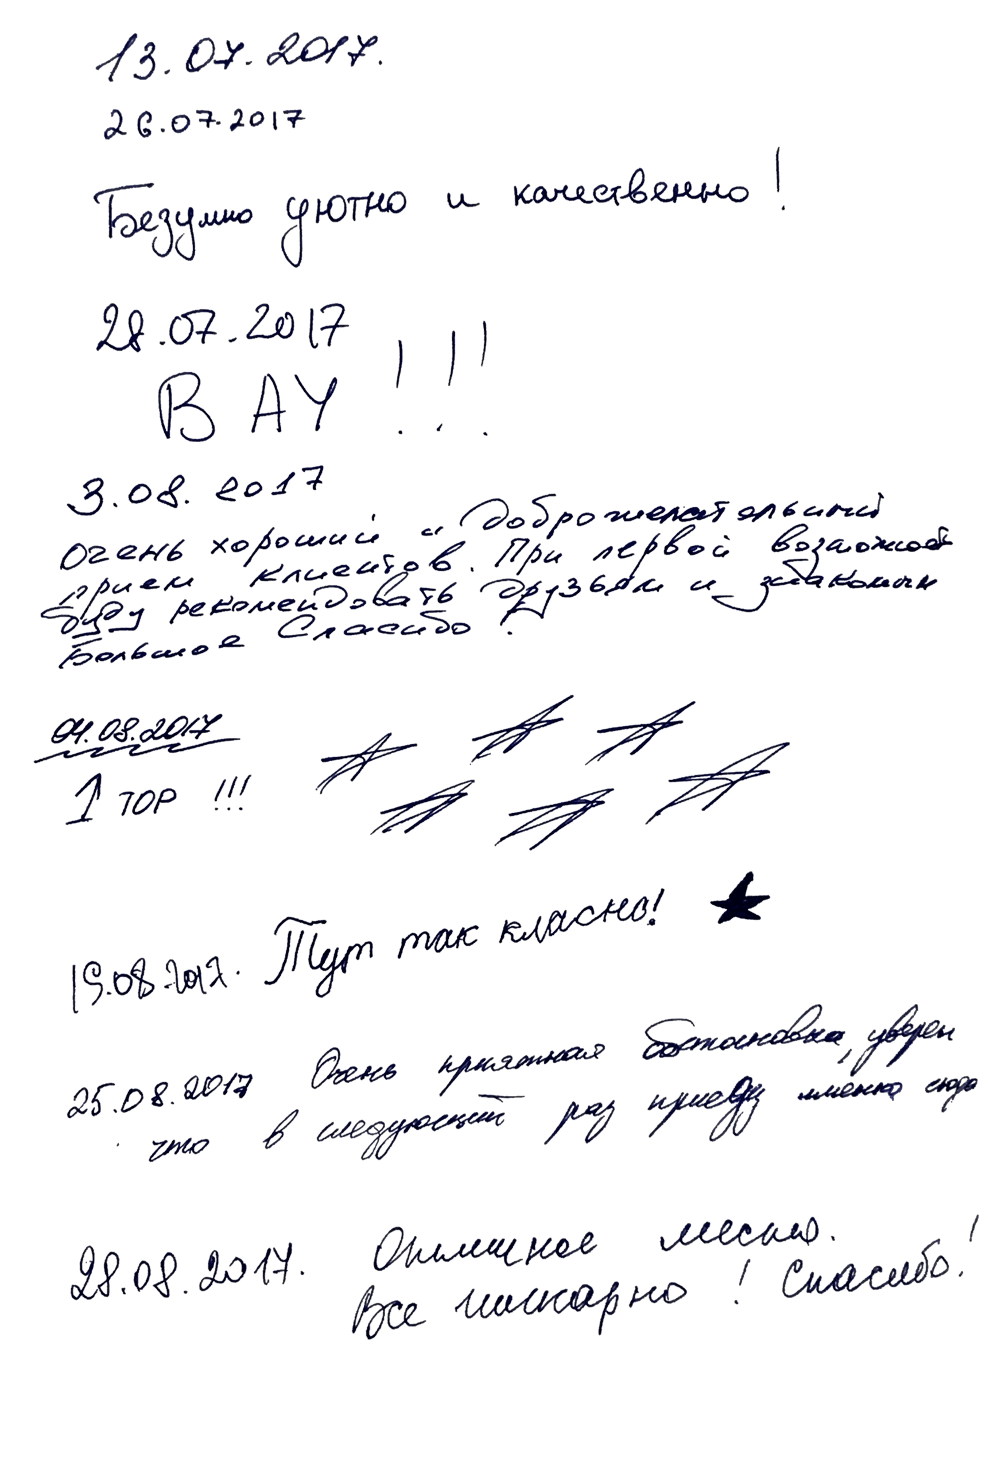 13.07.2017.
26.07.2017
Безумно уютно и качественно!
28.07.2017
ВАУ!!!
3.08.2017
Очень хороший и доброжелательный
прием клиентов. При первой возможност
буду рекомендовать друзьям и знакомым
Большое Спасибо!
04.08.2017
1 TOP !!!
19.08.2017. Тут так класно!
25.08.2017 Очень приятная обстановка, уверен
что в следующий раз приеду именно сюда
28.08.2017. Отличное место.
Все шикарно! Спасибо!!